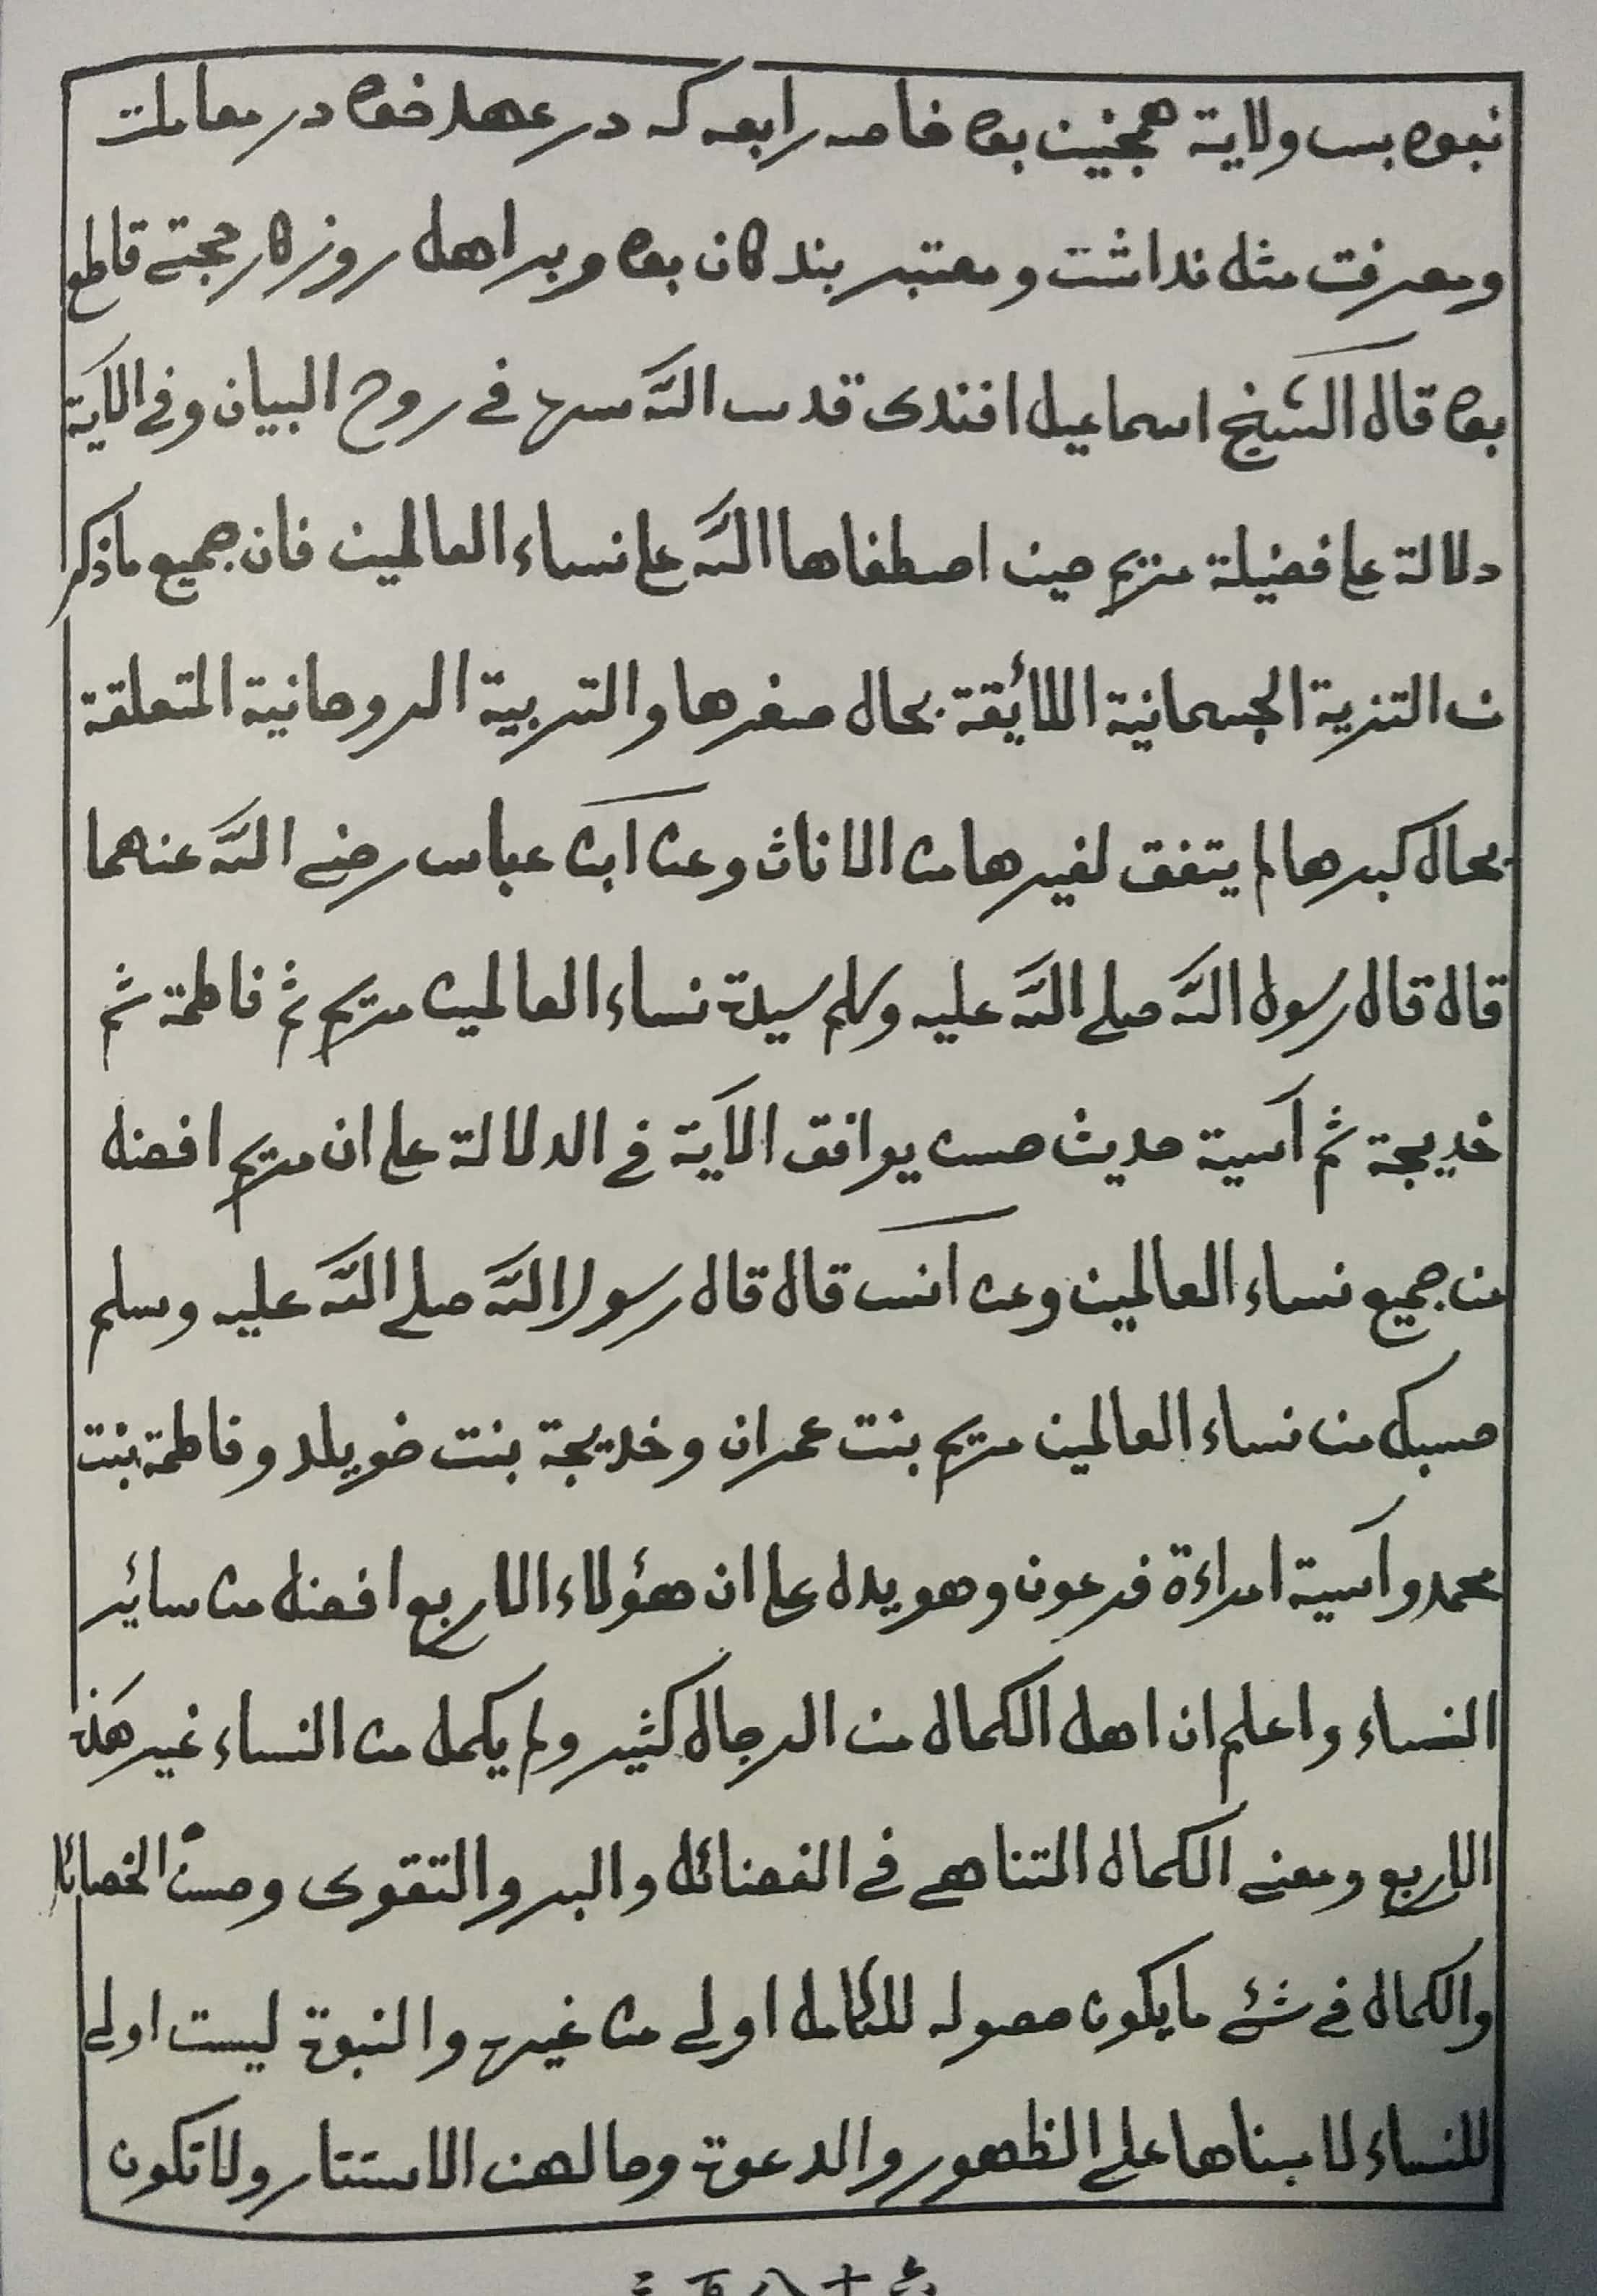 نبوه بس ولاية همچنين بود خاصه رابعه كه در عهد خود در معاملت
ومعرفت مثل نداشت و معتبر بندكان بود و بر اهل روزكار حجتے قاطع
بود قال الشيخ اسماعيل افندى قدس اللّٰه سره فے روح البيان وفے الآية
دلالة علے فضيلة مريم حين اصطفاها اللّٰه علے نساء العالمين فان جميع ماذكر
من التربية الجسمانية اللائقة بحال صغرها والتربية الروحانية المتعلقة
بحال كبرها لم يتفق لغيرها من الاناث وعن ابن عباس رضے اللّٰه عنهما
قال قال رسول اللّٰه صلے اللّٰه عليه وسلم سيدة نساء العالمين مريم ثم فاطمة ثم
خديجة ثم آسية حديث حسن يوافق الآية فے الدلالة علے ان مريم افضل
من جميع نساء العالمين وعن انس قال قال رسول اللّٰه صلے اللّٰه عليه وسلم
حسبك من نساء العالمين مريم بنت عمران وخديجة بنت خويلد وفاطمة بنت
محمد وآسية امراءة فرعون وهو يدل علے ان هؤلاء الاربع افضل من سائر
النساء واعلم ان اهل الكمال من الرجال كثير ولم يكمل من النساء غير هذه
الاربع ومعنے الكمال التناهے فے الفضائل والبر والتقوى وحسن الخصائل
والكمال فے شئے مايكون حصوله للكامل اولے من غيره والنبوة ليست اولے
للنساء لا مبناها علے الظهور والدعوة وحالهن الاستتار ولا تكون